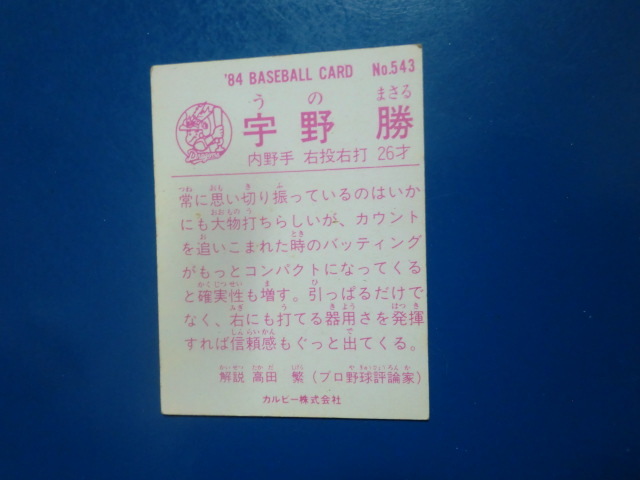 '84 BASEBALL CARD No.543
うの まさる
宇野 勝
内野手 右投右打 26才
常に思い切り振っているのはいか
にも大物打ちらしいが、カウント
を追いこまれた時のバッティング
がもっとコンパクトになってくる
と確実性も増す。引っぱるだけで
なく、右にも打てる器用さを発揮
すれば信頼感もぐっと出てくる。
解説 高田 繁（プロ野球評論家）
カルビー株式会社